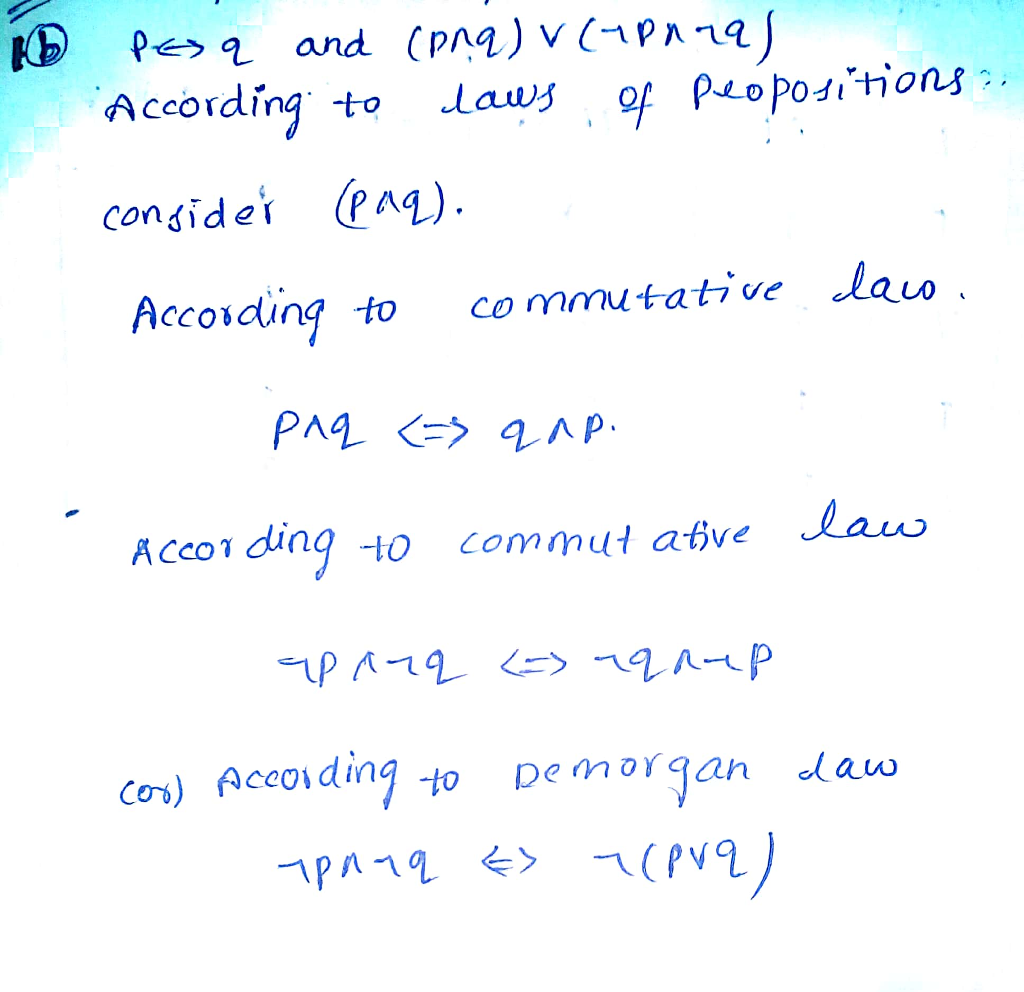 1(b) p↔q and (p∧q) ∨ (¬p∧¬q)
According to laws of propositions:.
consider (p∧q).
According to commutative law.
p∧q <=> q∧p.
According to commutative law
¬p∧¬q <=> ¬q∧¬p
(or) According to Demorgan law
¬p∧¬q <=> ¬(p∨q)